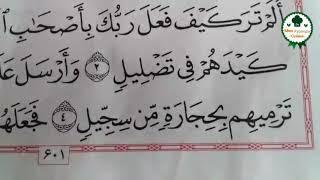 أَلَمْ تَرَ كَيْفَ فَعَلَ رَبُّكَ بِأَصْحَابِ
كَيْدَهُمْ فِي تَضْلِيلٍ ٢ وَأَرْسَلَ
تَرْمِيهِم بِحِجَارَةٍ مِّن سِجِّيلٍ ٤ فَجَعَلَهُمْ
٦٠١